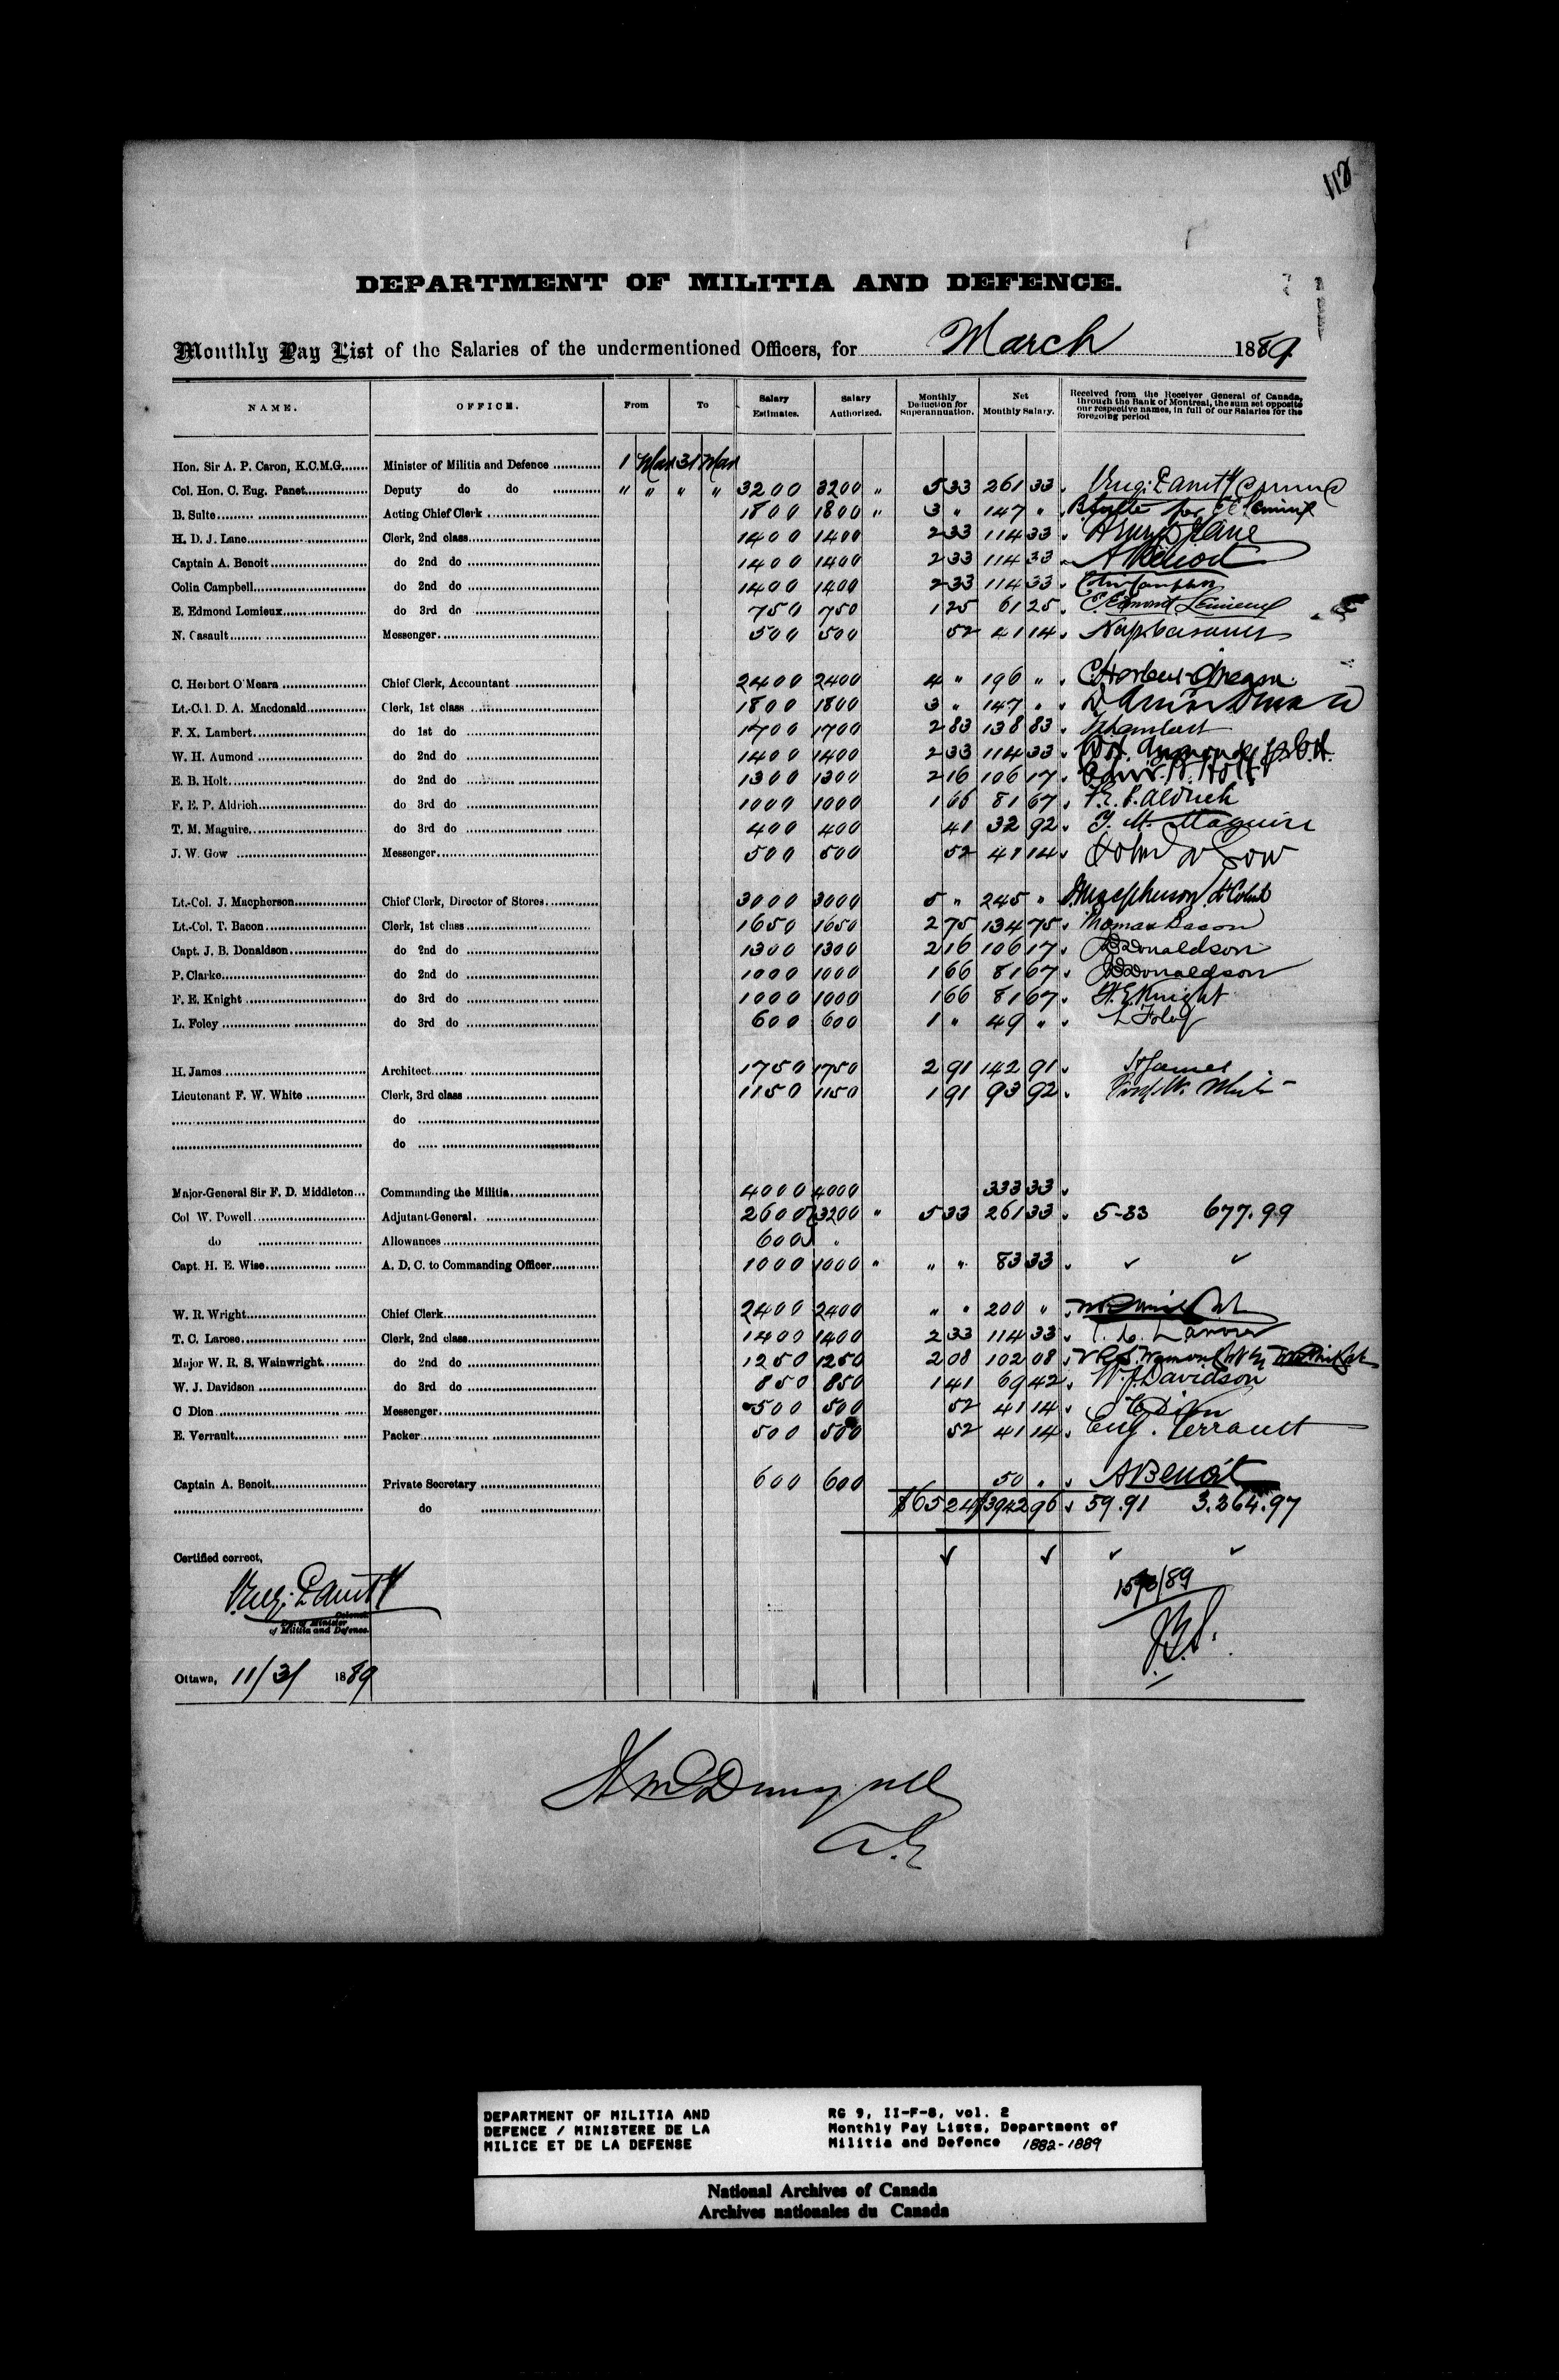 112
DEPARTMENT OF MILITIA AND DEFENCE.
Monthly Pay List of the Salaries of the undermentioned Officers, for March 1889.
NAME. OFFICE. From To Salary Estimates. Salary Authorized. Monthly Deduction for Superannuation. Net Monthly Salary. Received from the Receiver General of Canada, through the Bank of Montreal, the sum set opposite our respective names, in full of our Salaries for the foregoing period
Hon. Sir A. P. Caron, K.C.M.G. Minister of Militia and Defence 1 Mar 31 Mar
Col. Hon. C. Eug. Panet Deputy do do " " " " 3200 3200 " 5 33 261 33
B. Sulte Acting Chief Clerk 1800 1800 " 3 " 147 " BSulte
H. D. J. Lane Clerk, 2nd class 1400 1400 2 33 114 33 Lane
Captain A. Benoit do 2nd do 1400 1400 2 33 114 33 A Benoit
Colin Campbell do 2nd do 1400 1400 2 33 114 33 Colin Campbell
E. Edmond Lemieux do 3rd do 750 750 1 25 61 25 E. Edmond Lemieux
N. Casault Messenger 500 500 52 41 14 Nap Casault
C. Herbert O'Meara Chief Clerk, Accountant 2400 2400 4 " 196 " C Herbert O'Meara
Lt.-Col. D. A. Macdonald Clerk, 1st class 1800 1800 3 " 147 "
F. X. Lambert do 1st do 1700 1700 2 83 138 83 Lambert
W. H. Aumond do 2nd do 1400 1400 2 33 114 33 W.H. Aumond
E. B. Holt do 2nd do 1300 1300 2 16 106 17 B. Holt
F. E. P. Aldrich do 3rd do 1000 1000 1 66 81 67 F.E.P. Aldrich
T. M. Maguire do 3rd do 400 400 41 32 92 T. M. Maguire
J. W. Gow Messenger 500 500 52 41 14 John W Gow
Lt.-Col. J. Macpherson Chief Clerk, Director of Stores 3000 3000 5 " 245 " J. Macpherson Lt Col
Lt.-Col. T. Bacon Clerk, 1st class 1650 1650 2 75 134 75 Thomas Bacon
Capt. J. B. Donaldson do 2nd do 1300 1300 2 16 106 17 JBDonaldson
P. Clarke do 2nd do 1000 1000 1 66 81 67 JBDonaldson
F. E. Knight do 3rd do 1000 1000 1 66 81 67 F.E Knight
L. Foley do 3rd do 600 600 1 " 49 " L Foley
H. James Architect 1750 1750 2 91 142 91 H James
Lieutenant F. W. White Clerk, 3rd class 1150 1150 1 91 93 92 W. White
do
do
Major-General Sir F. D. Middleton Commanding the Militia 4000 4000 333 33
Col W. Powell Adjutant-General 2600 3200 " 5 33 261 33 5-33 677.99
do Allowances 600 "
Capt. H. E. Wise A. D. C. to Commanding Officer 1000 1000 " " " 83 33
W. R. Wright Chief Clerk 2400 2400 " " 200 "
T. C. Larose Clerk, 2nd class 1400 1400 2 33 114 33 T. C. Larose
Major W. R. S. Wainwright do 2nd do 1250 1250 2 08 102 08
W. J. Davidson do 3rd do 850 850 1 41 69 42 W.J. Davidson
C Dion Messenger 500 500 52 41 14 C Dion
E. Verrault Packer 500 500 52 41 14 Eug. Verrault
Captain A. Benoit Private Secretary 600 600 50 " A Benoit
do $65 24 $3942 96 59.91 3.264.97
Certified correct,
Eug: Panet
Colonel
Dy. of Minister
of Militia and Defence.
/89
Ottawa, 11/3/ 1889
DEPARTMENT OF MILITIA AND
DEFENCE / MINISTERE DE LA
MILICE ET DE LA DEFENSE
RG 9, II-F-8, vol. 2
Monthly Pay Lists, Department of
Militia and Defence 1882-1889
National Archives of Canada
Archives nationales du Canada